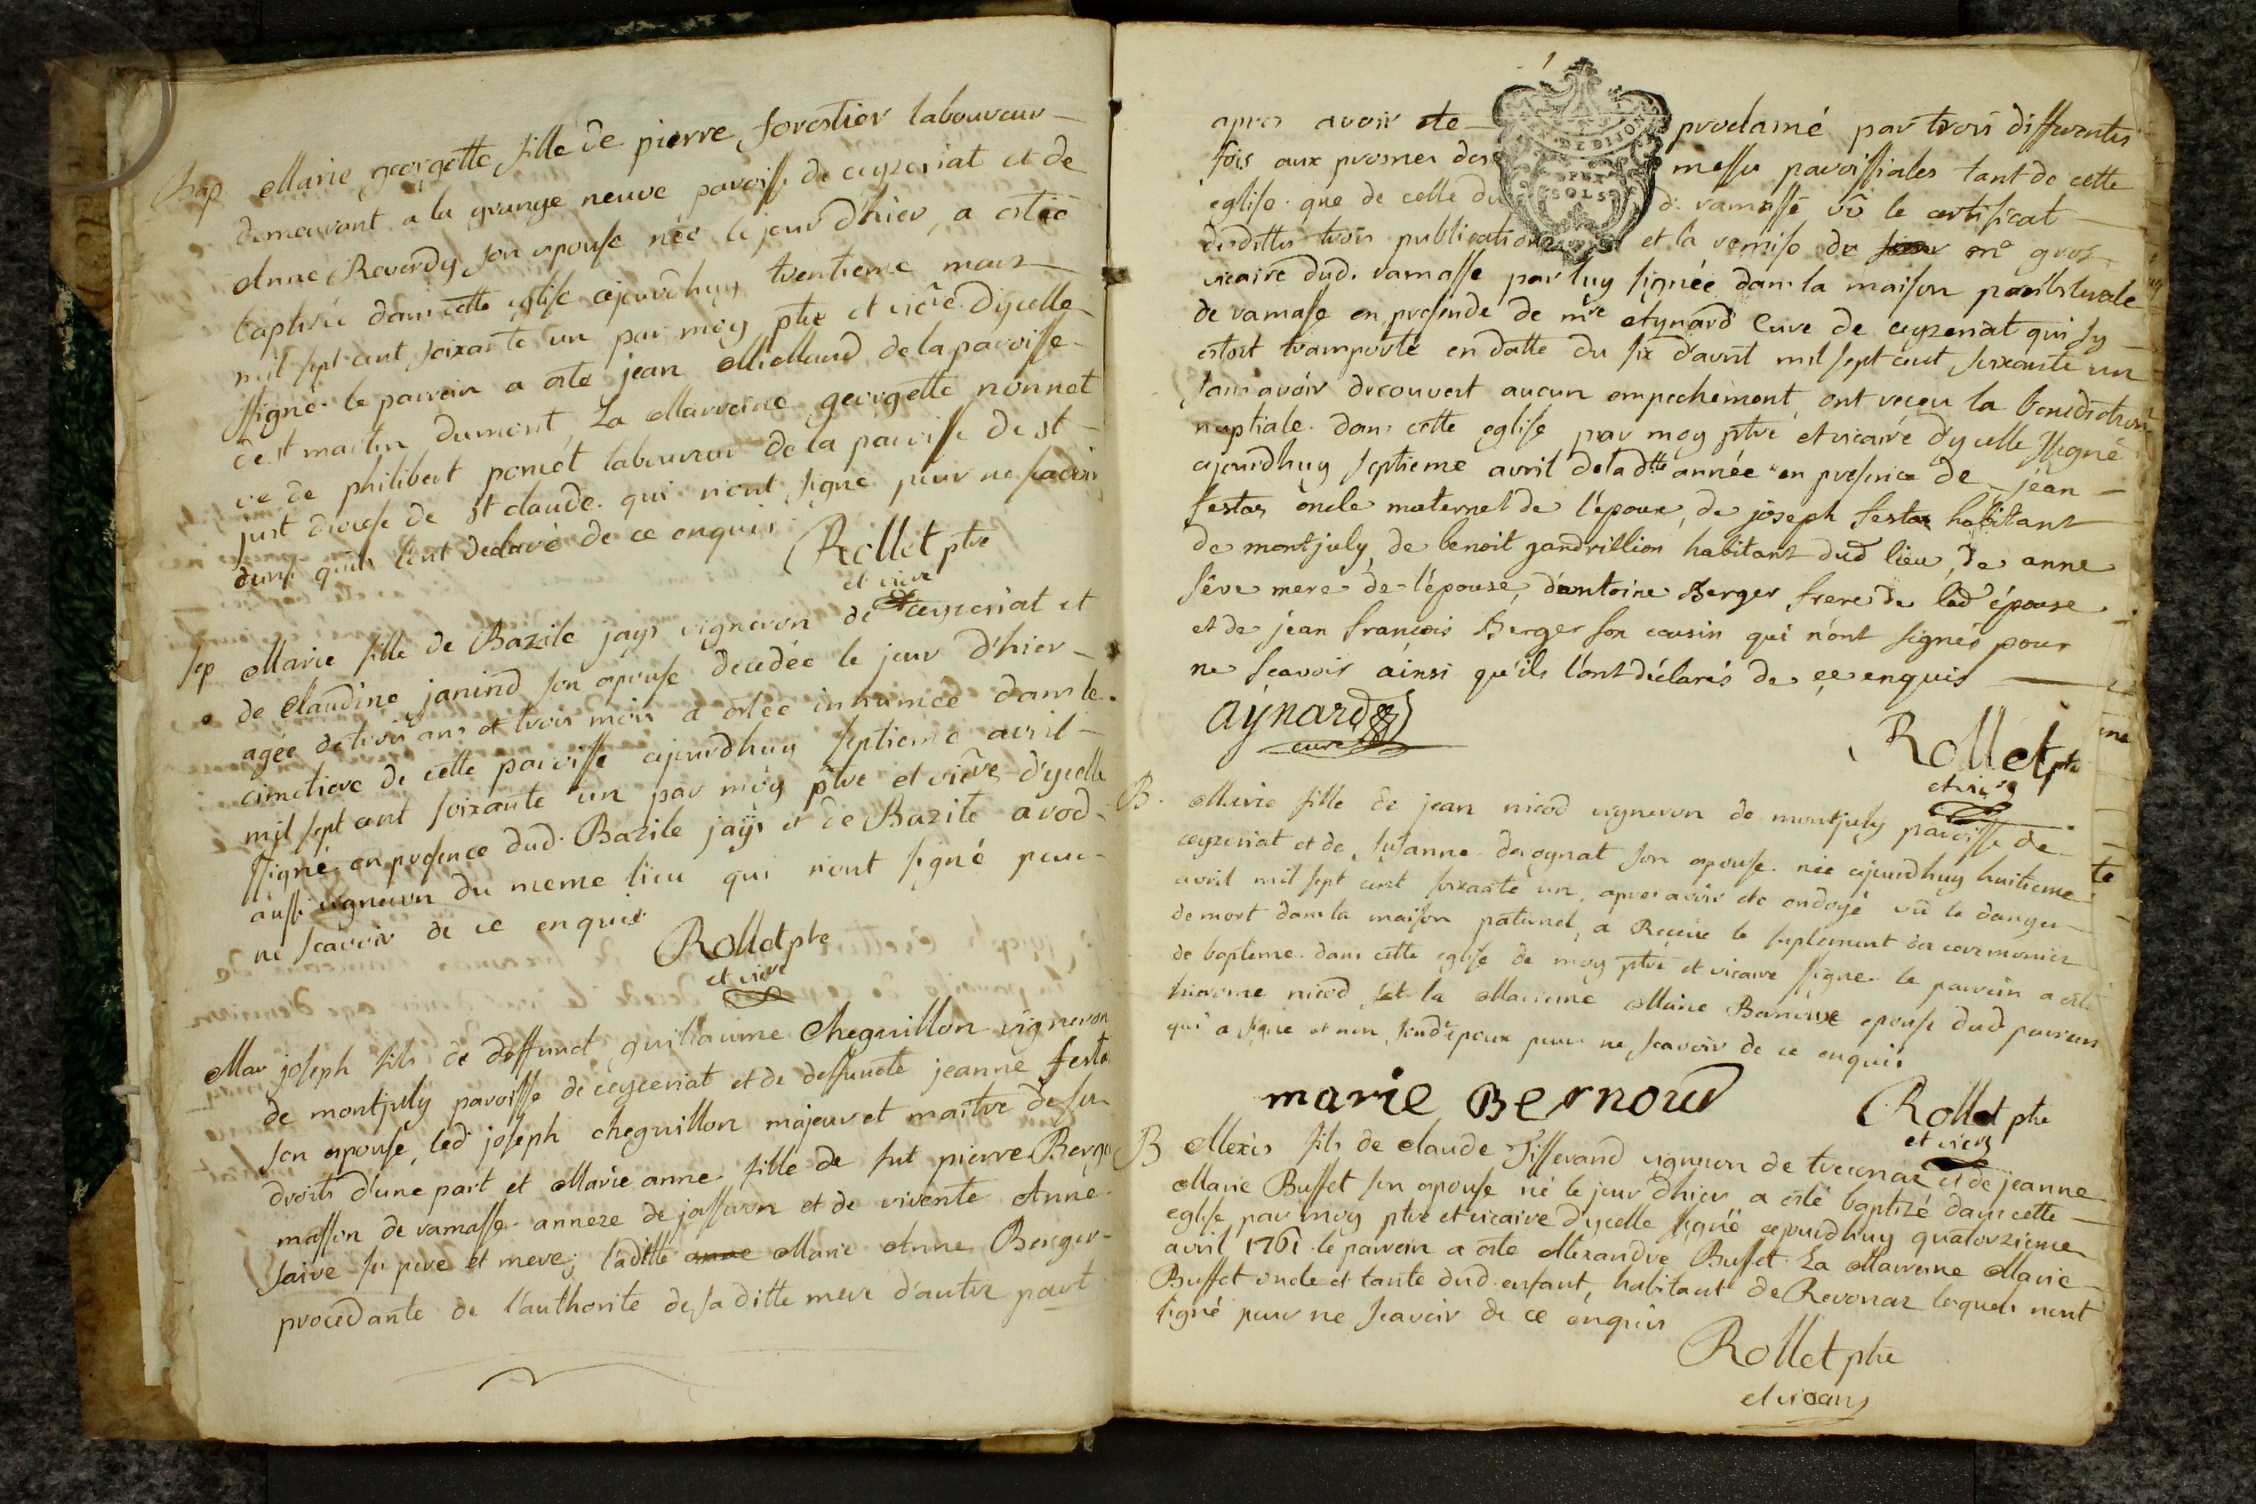 Bap Marie georgette fille de pierre forestier laboureur
demeurant a la grange neuve paroisse de ceyzeriat et de
Anne Reverdy son epouse née le jour d'hier, a estée
baptisée dans cette eglise ajourdhuy trentieme mars
mil sept cent soixante un par moy ptre et vicre d'ycelle
ssigné le parrein a esté jean Miolland de la paroisse
de st martin dumont, La Marreine georgette nonnet
ve de philibert poncet laboureur de la paroisse de st
just diocese de st claude qui n'ont signé pour ne scavoir
ainsi qu'ils l'ont declaré de ce enquis
Rollet ptre
et vicre
Sep Marie fille de Bazile jays vigneron de ceyzeriat et
de Claudine janind son epouse decedée le jour d'hier
agée de trois ans et trois mois a estée inhumée dans le
cimetiere de cette paroisse ajourdhuy septieme avril
mil sept cent soixante un par moy ptre et vicre d'ycelle
ssigné en presence dud. Bazile jays et de Bazile avod
aussi vigneron du meme lieu qui n'ont signé pour
ne scavoir de ce enquis
Rollet ptre
et vicre
Mar joseph fils de deffunct guillaume Cheguillon vigneron
de montjuly paroisse de ceyzeriat et de deffuncte jeanne festa
son epouse, led joseph cheguillon majeur et maitre de su
droits d'une part et Marie anne fille de fut pierre Berger
masson de ramasse annexe de jasseron et de vivente Anne
saive ses pere et mere; laditte anne Marie Anne Berger
procedante de l'authorite de sa ditte mere d'autre part
apres avoir ete proclamé par trois differentes
fois aux prosnes des messes paroissiales tant de cette
eglise que de celle du d. ramasse vû le certificat
desdittes trois publications et la remise de me gros
vicaire dud. ramasse par luy signée dans la maison presbiterale
de ramasse en presence de mre Aynard Curé de ceyzeriat qui sy
estoit transporté en datte du six d'avril mil sept cent soixante un
sans avoir decouvert aucun empechement, ont receu la benediction
nuptiale dans cette eglise par moy ptre et vicaire d'ycelle ssigné
ajourdhuy septieme avril de la dtte année en presence de jean
festas oncle maternel de l'epoux, de joseph festas habitant
de montjuly, de benoit gandrillion habitant dud lieu, de anne
sêve mere de l'épouse, d'antoine Berger frere de lad épouse
et de jean francois Berger son cousin qui n'ont signés pour
ne scavoir ainsi qu'ils l'ont déclarés de ce enquis
aynard
curé
Rollet ptre
et vicre
B. Marie fille de jean nicod vigneron de montjuly paroisse de
ceyzeriat et de Susanne derognat son epouse née ajourdhuy huitieme
avril mil sept cent soixante un, apres avoir ete ondoyé vû le danger
de mort dans la maison paternel, a Reçeue le suplement des ceremonies
de bapteme dans cette eglise de moy ptre et vicaire signé le parrein a esté
hierome nicod et la Marreine Marie Bernoux epouse dud parrein
qui a signé et non sondt epoux pour ne scavoir de ce enquis
marie Bernoud
Rollet ptre
et vicre
B Alexis fils de claude Tifferand vigneron de treconnaz et de jeanne
Marie Buffet son epouse né le jour d'hier a esté baptizé dans cette
eglise par moy ptre et vicaire d'ycelle signé ajourdhuy quatorzieme
avril 1761 le parrein a este Alexandre Buffet La Marreine Marie
Buffet oncle et tante dud. enfant, habitant de Revonaz lequels n'ont
signé pour ne scavoir de ce enquis
Rollet ptre
et vicaire